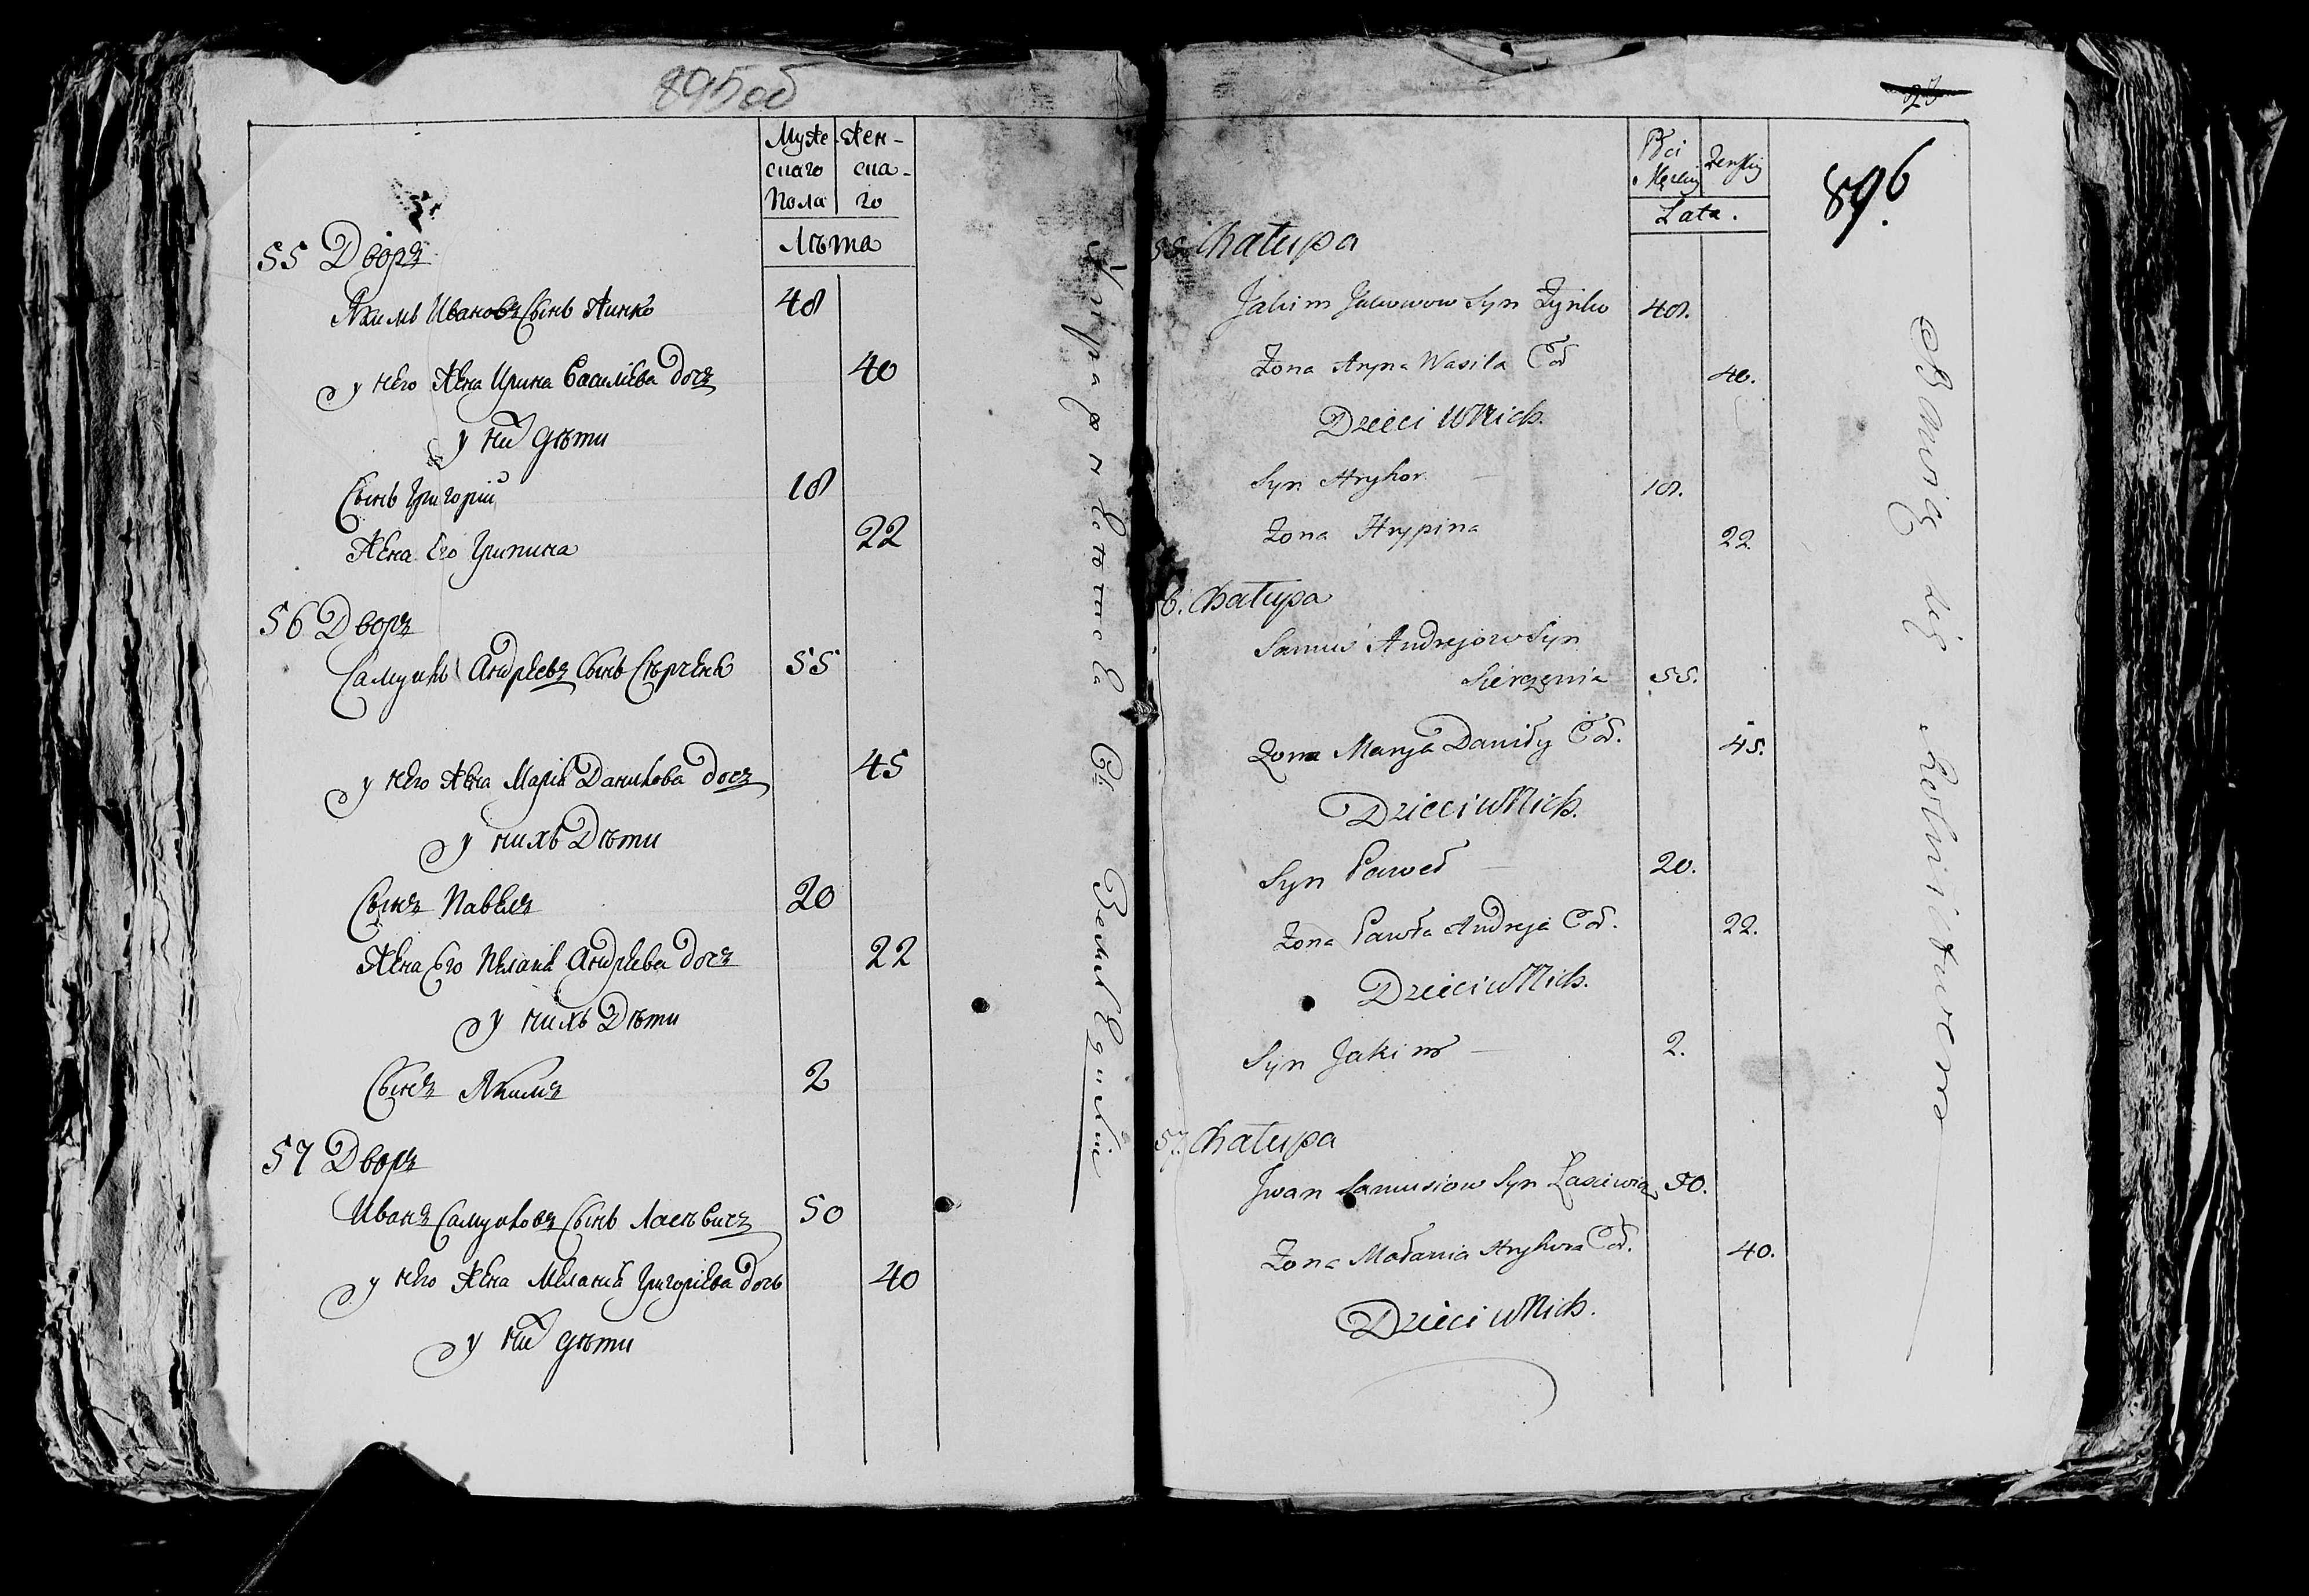 895об
Муже
скаго
Пола
Жен-
ска-
го
Лѣта
55 Дворъ
Якимъ Ивановъ Сынъ Жинко 48
у него Жена Ирина Василіева дочъ 40
у них дѣти
Сынъ Григорій 18
Жена Его Грипина 22
56 Дворъ
Самуилъ Андреевъ Сынъ 55
у него Жена Марія Данилова дочъ 45
у нихъ Дѣти
Сынъ Павелъ 20
Жена Его Андреева дочъ 22
у нихъ Дѣти
Сынъ Якимъ 2
57 Дворъ
Иванъ Самуиловъ Сынъ Ласевичъ 50
у него Жена Меланія Григоріева дочь 40
у них дѣти
896.
Płci
Męzkiy
Żenskiy
Lata.
Chałupa
Jakim Syn Żynko 48.
Żona Aryna Wasila Cór 40.
Dzieci u Nich.
Syn Hryhor 18.
Żona Hrypina 22.
6. Chałupa
Samuś Andrejow Syn
55.
Żona Marya Daniły Cór. 45.
Dzieci u Nich.
Syn Paweł 20.
Żona Pawła Andreja Cór. 22.
Dzieci u Nich.
Syn Jakim 2.
57. Chałupa
Jwan Samusiow Syn 50.
Żona Mołania Hryhora Cór. 40.
Dzieci u Nich.
Bawią się Rolnictwem